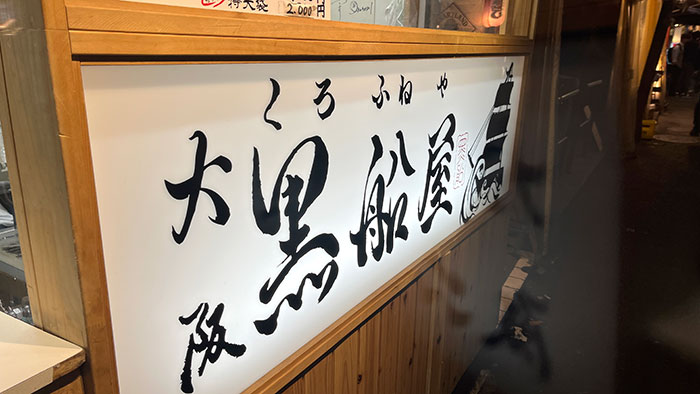 特大袋 2,000円
くろふねや
大阪
黒船屋